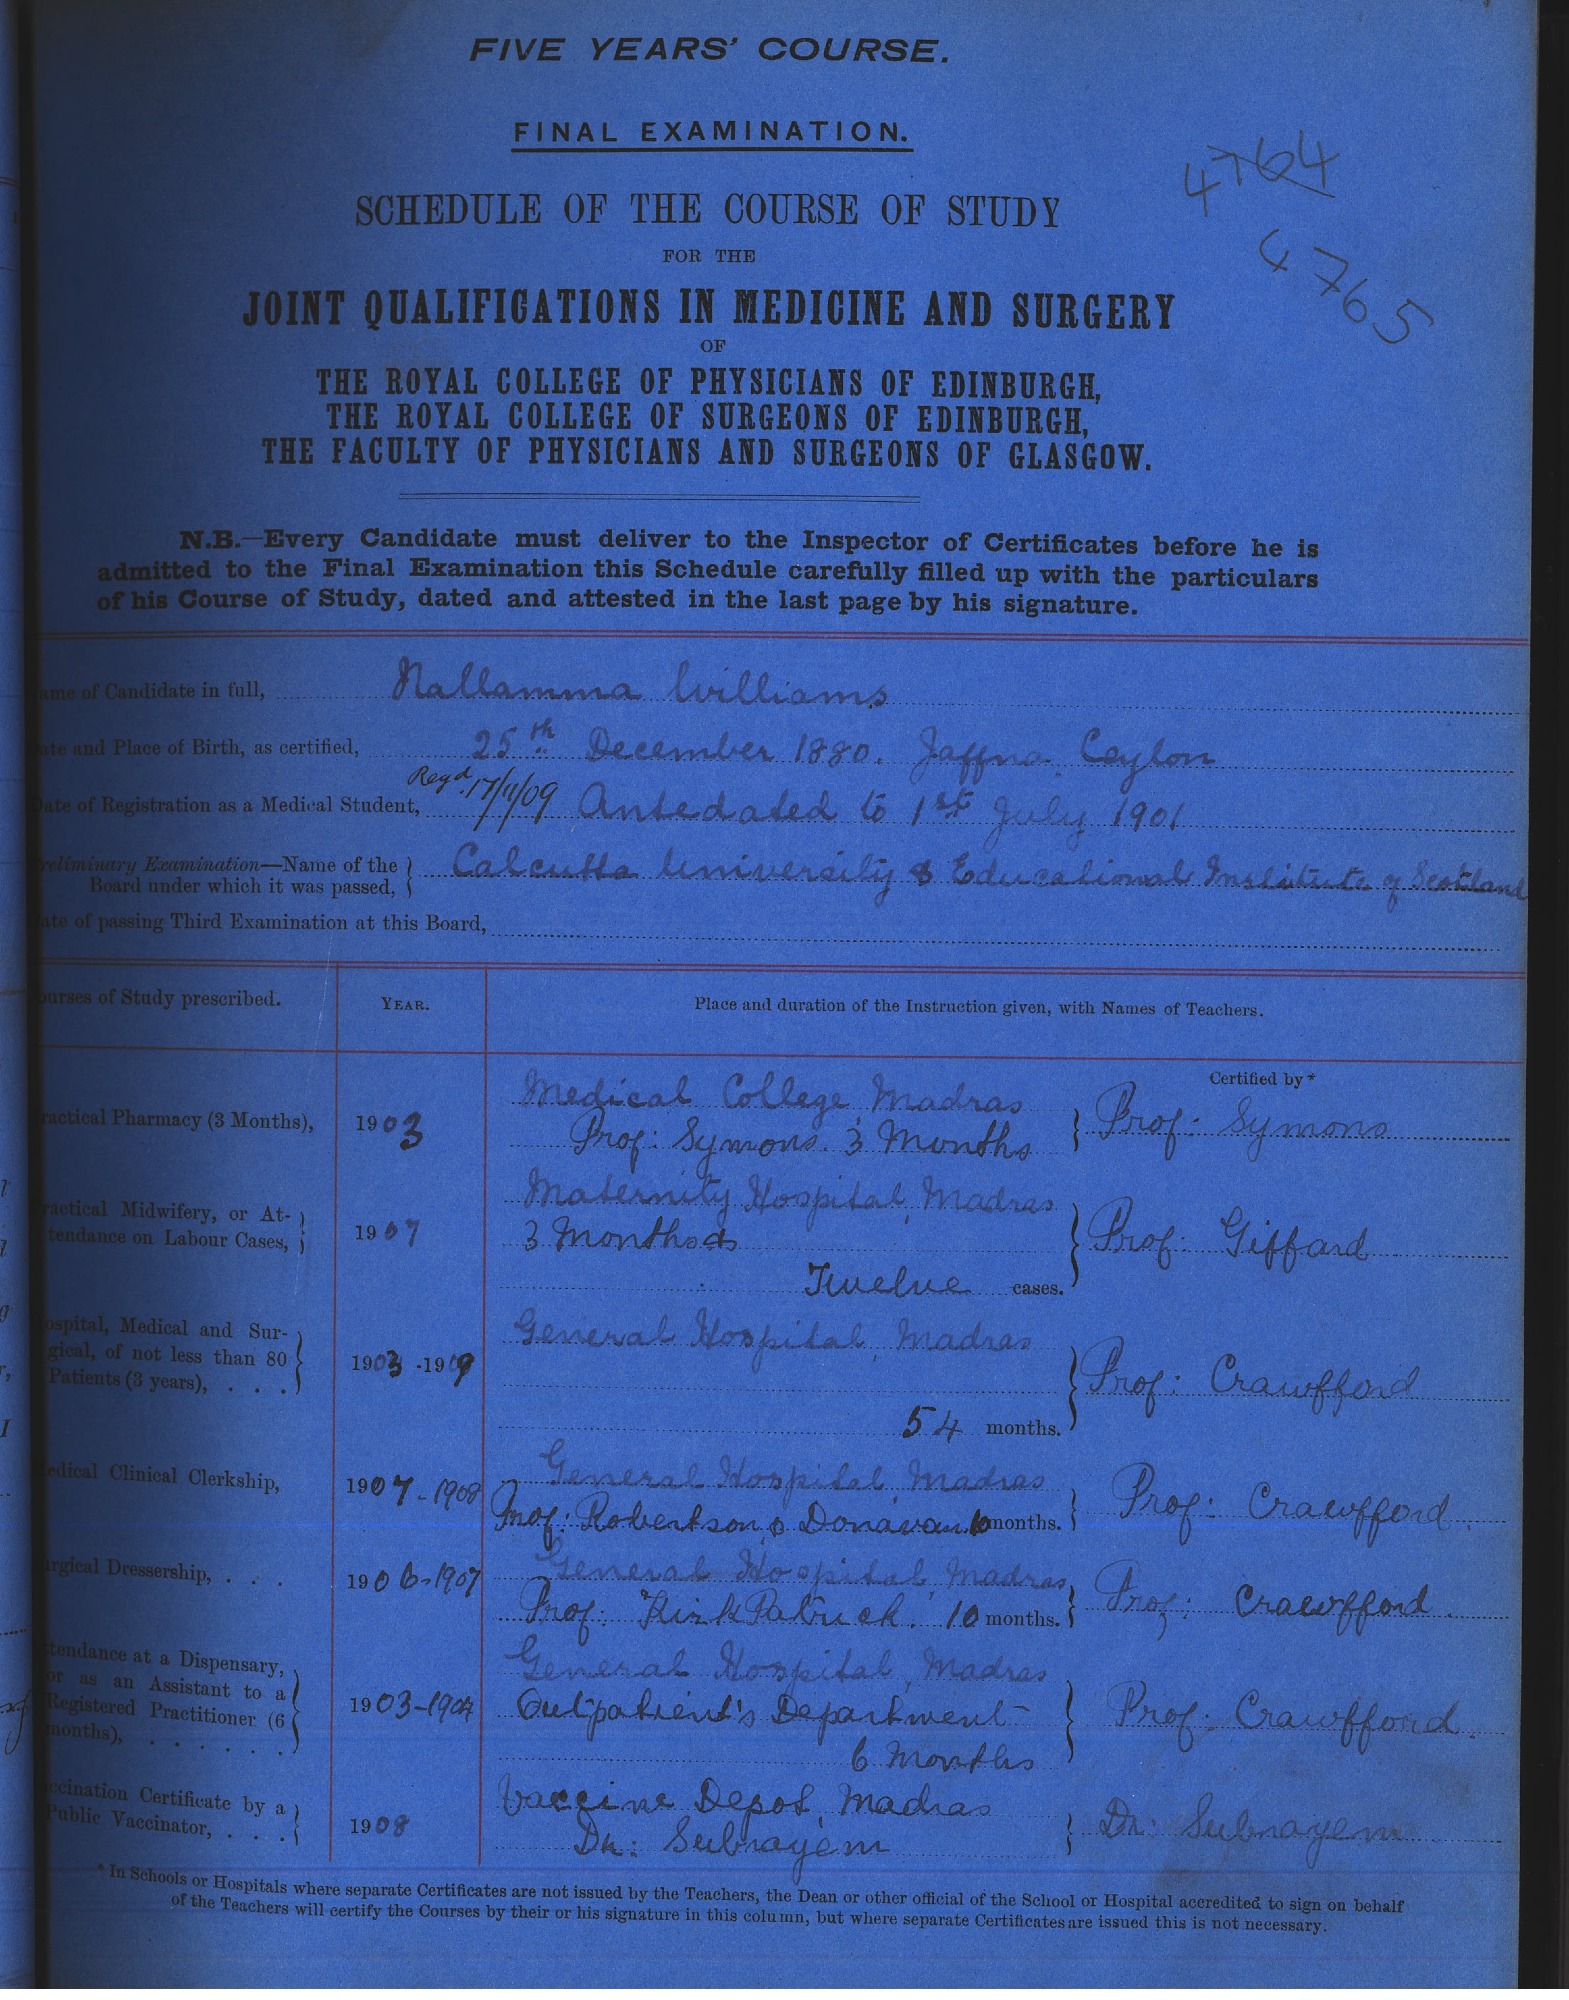 FIVE YEARS' COURSE.
FINAL EXAMINATION.
4764
4765
SCHEDULE OF THE COURSE OF STUDY
FOR THE
JOINT QUALIFICATIONS IN MEDICINE AND SURGERY
OF
THE ROYAL COLLEGE OF PHYSICIANS OF EDINBURGH,
THE ROYAL COLLEGE OF SURGEONS OF EDINBURGH,
THE FACULTY OF PHYSICIANS AND SURGEONS OF GLASGOW.
N.B.—Every Candidate must deliver to the Inspector of Certificates before he is
admitted to the Final Examination this Schedule carefully filled up with the particulars
of his Course of Study, dated and attested in the last page by his signature.
ame of Candidate in full, Nallamma Williams
ate and Place of Birth, as certified, 25th December 1880. Jaffna. Ceylon
ate of Registration as a Medical Student, Regd. 17/11/09 Antedated to 1st July 1901
reliminary Examination—Name of the
Board under which it was passed, Calcutta University & Educational Institute of Scotland
ate of passing Third Examination at this Board,
ourses of Study prescribed. YEAR. Place and duration of the Instruction given, with Names of Teachers.
Certified by *
ractical Pharmacy (3 Months), 1903 Medical College, Madras
Prof: Symons. 3 Months Prof: Symons
ractical Midwifery, or At-
tendance on Labour Cases, 1907 Maternity Hospital, Madras
3 Months Prof: Giffard
Twelve cases.
ospital, Medical and Sur-
gical, of not less than 80
Patients (3 years), . . . 1903-1909 General Hospital, Madras
54 months. Prof: Crawfford
edical Clinical Clerkship, 1907-1908 General Hospital, Madras
Prof: Robertson & Donavan 10 months. Prof: Crawfford.
urgical Dressership, . . . 1906-1907 General Hospital, Madras,
Prof: KirkPatrick. 10 months. Prof: Crawfford.
tendance at a Dispensary,
or as an Assistant to a
Registered Practitioner (6
months), . . . . . . 1903-1904 General Hospital, Madras
Outpatient's Department
6 Months Prof: Crawfford.
ccination Certificate by a
Public Vaccinator, . . . 1908 Vaccine Depot, Madras
Dr: Subrayem Dr: Subrayem
* In Schools or Hospitals where separate Certificates are not issued by the Teachers, the Dean or other official of the School or Hospital accredited to sign on behalf
of the Teachers will certify the Courses by their or his signature in this column, but where separate Certificates are issued this is not necessary.